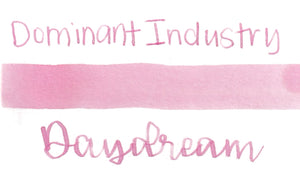 Dominant Industry
Daydream